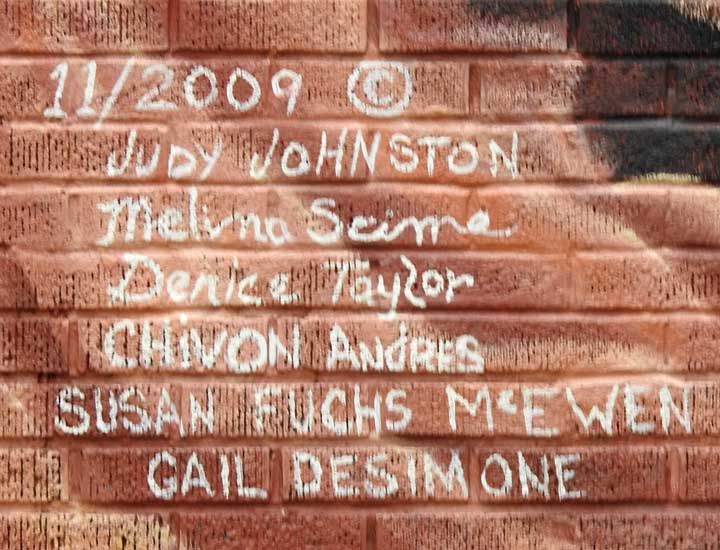 11/2009 ©
JUDY JOHNSTON
Melina Scime
Denice Taylor
CHIVON ANdRES
SUSAN FUCHS McEWEN
GAIL DESIMONE